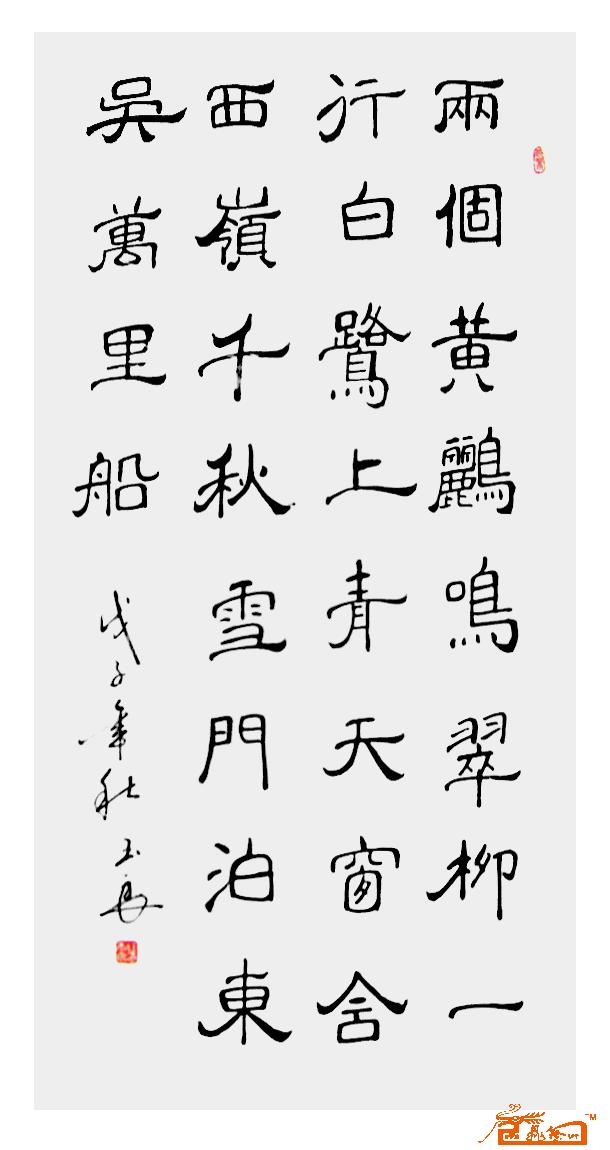 兩個黄鸝鳴翠柳一
行白鷺上青天窗含
西嶺千秋雪門泊東
吳萬里船
戊子年秋玉